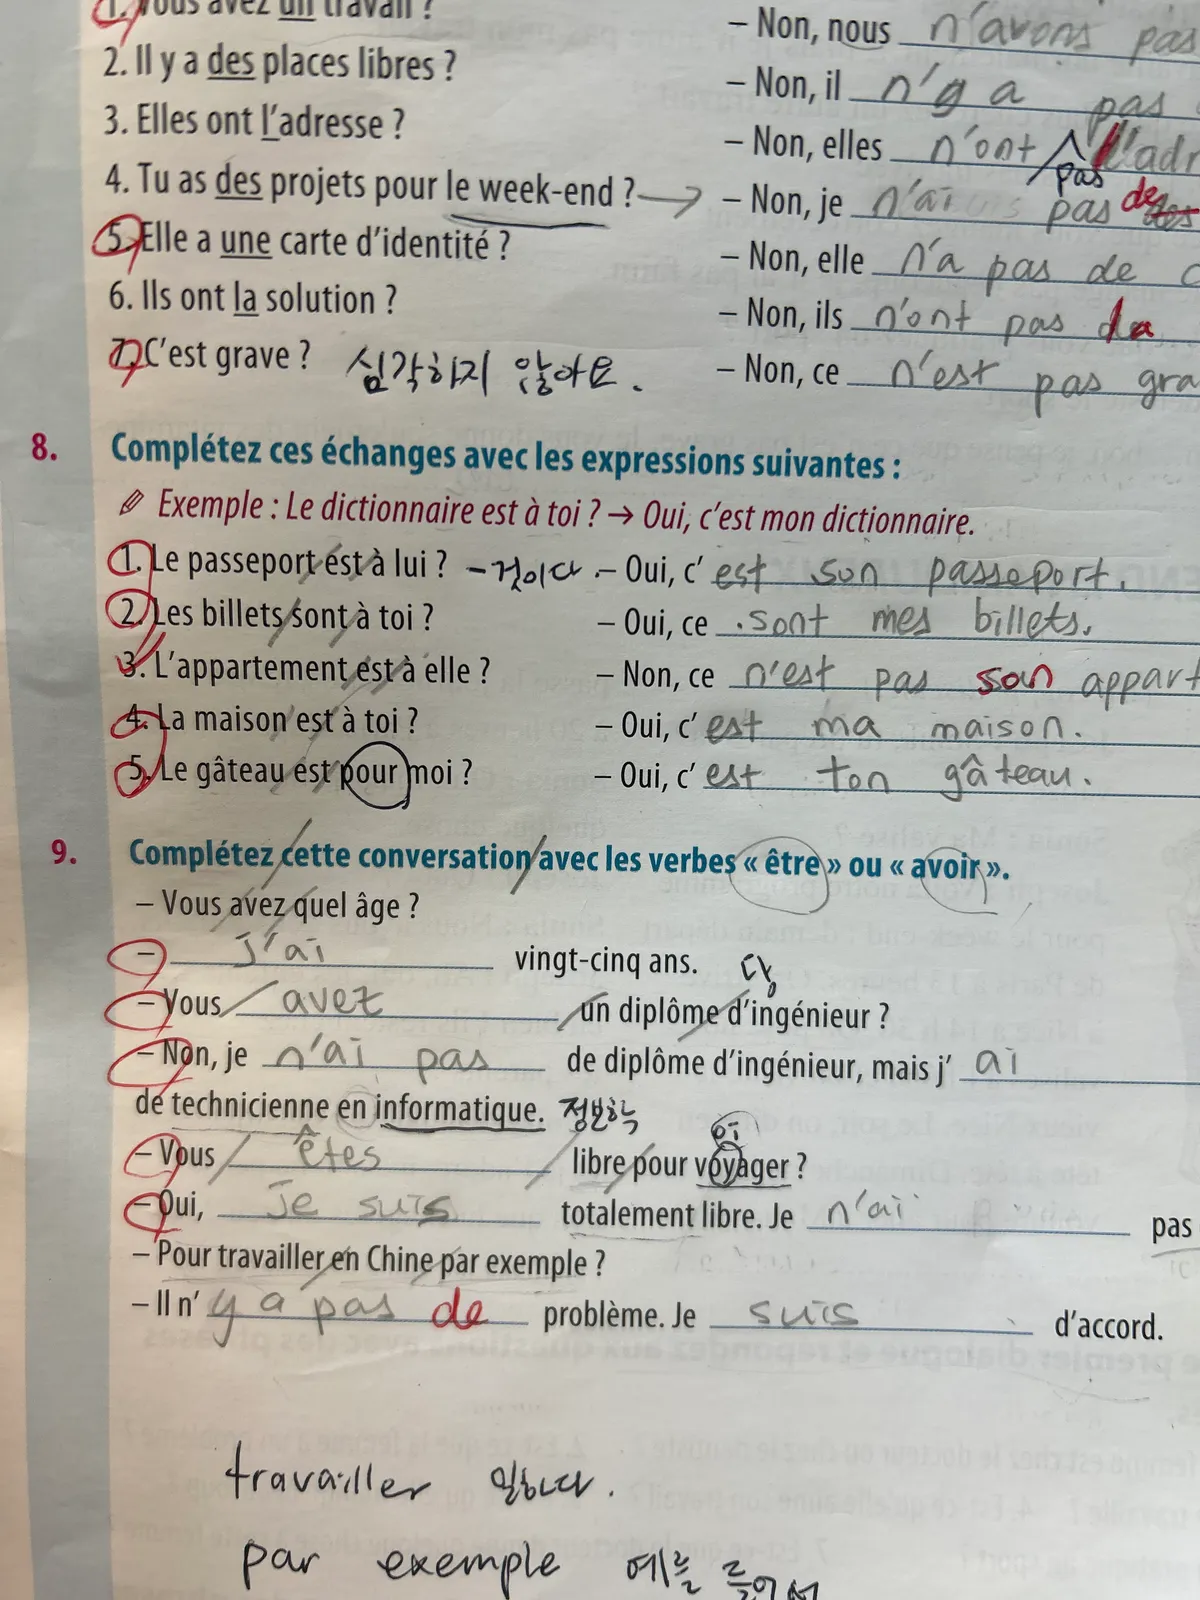 1. Vous avez un travail ? – Non, nous n'avons pas
2. Il y a des places libres ? – Non, il n'y a pas
3. Elles ont l'adresse ? – Non, elles n'ont pas l'adr
4. Tu as des projets pour le week-end ? → – Non, je n'ai pas de
5. Elle a une carte d'identité ? – Non, elle n'a pas de c
6. Ils ont la solution ? – Non, ils n'ont pas la
7. C'est grave ? 심각하지 않아요. – Non, ce n'est pas gra
8. Complétez ces échanges avec les expressions suivantes :
Exemple : Le dictionnaire est à toi ? → Oui, c'est mon dictionnaire.
1. Le passeport est à lui ? – 것이다 – Oui, c' est son passeport.
2. Les billets sont à toi ? – Oui, ce sont mes billets.
3. L'appartement est à elle ? – Non, ce n'est pas son appart
4. La maison est à toi ? – Oui, c' est ma maison.
5. Le gâteau est pour moi ? – Oui, c' est ton gâteau.
9. Complétez cette conversation avec les verbes « être » ou « avoir ».
– Vous avez quel âge ?
– J'ai vingt-cinq ans.
– Vous avez un diplôme d'ingénieur ?
– Non, je n'ai pas de diplôme d'ingénieur, mais j' ai
de technicienne en informatique. 정보학
– Vous êtes libre pour voyager ?
– Oui, je suis totalement libre. Je n'ai pas
– Pour travailler en Chine par exemple ?
– Il n' y a pas de problème. Je suis d'accord.
travailler 일하다.
par exemple 예를 들어서